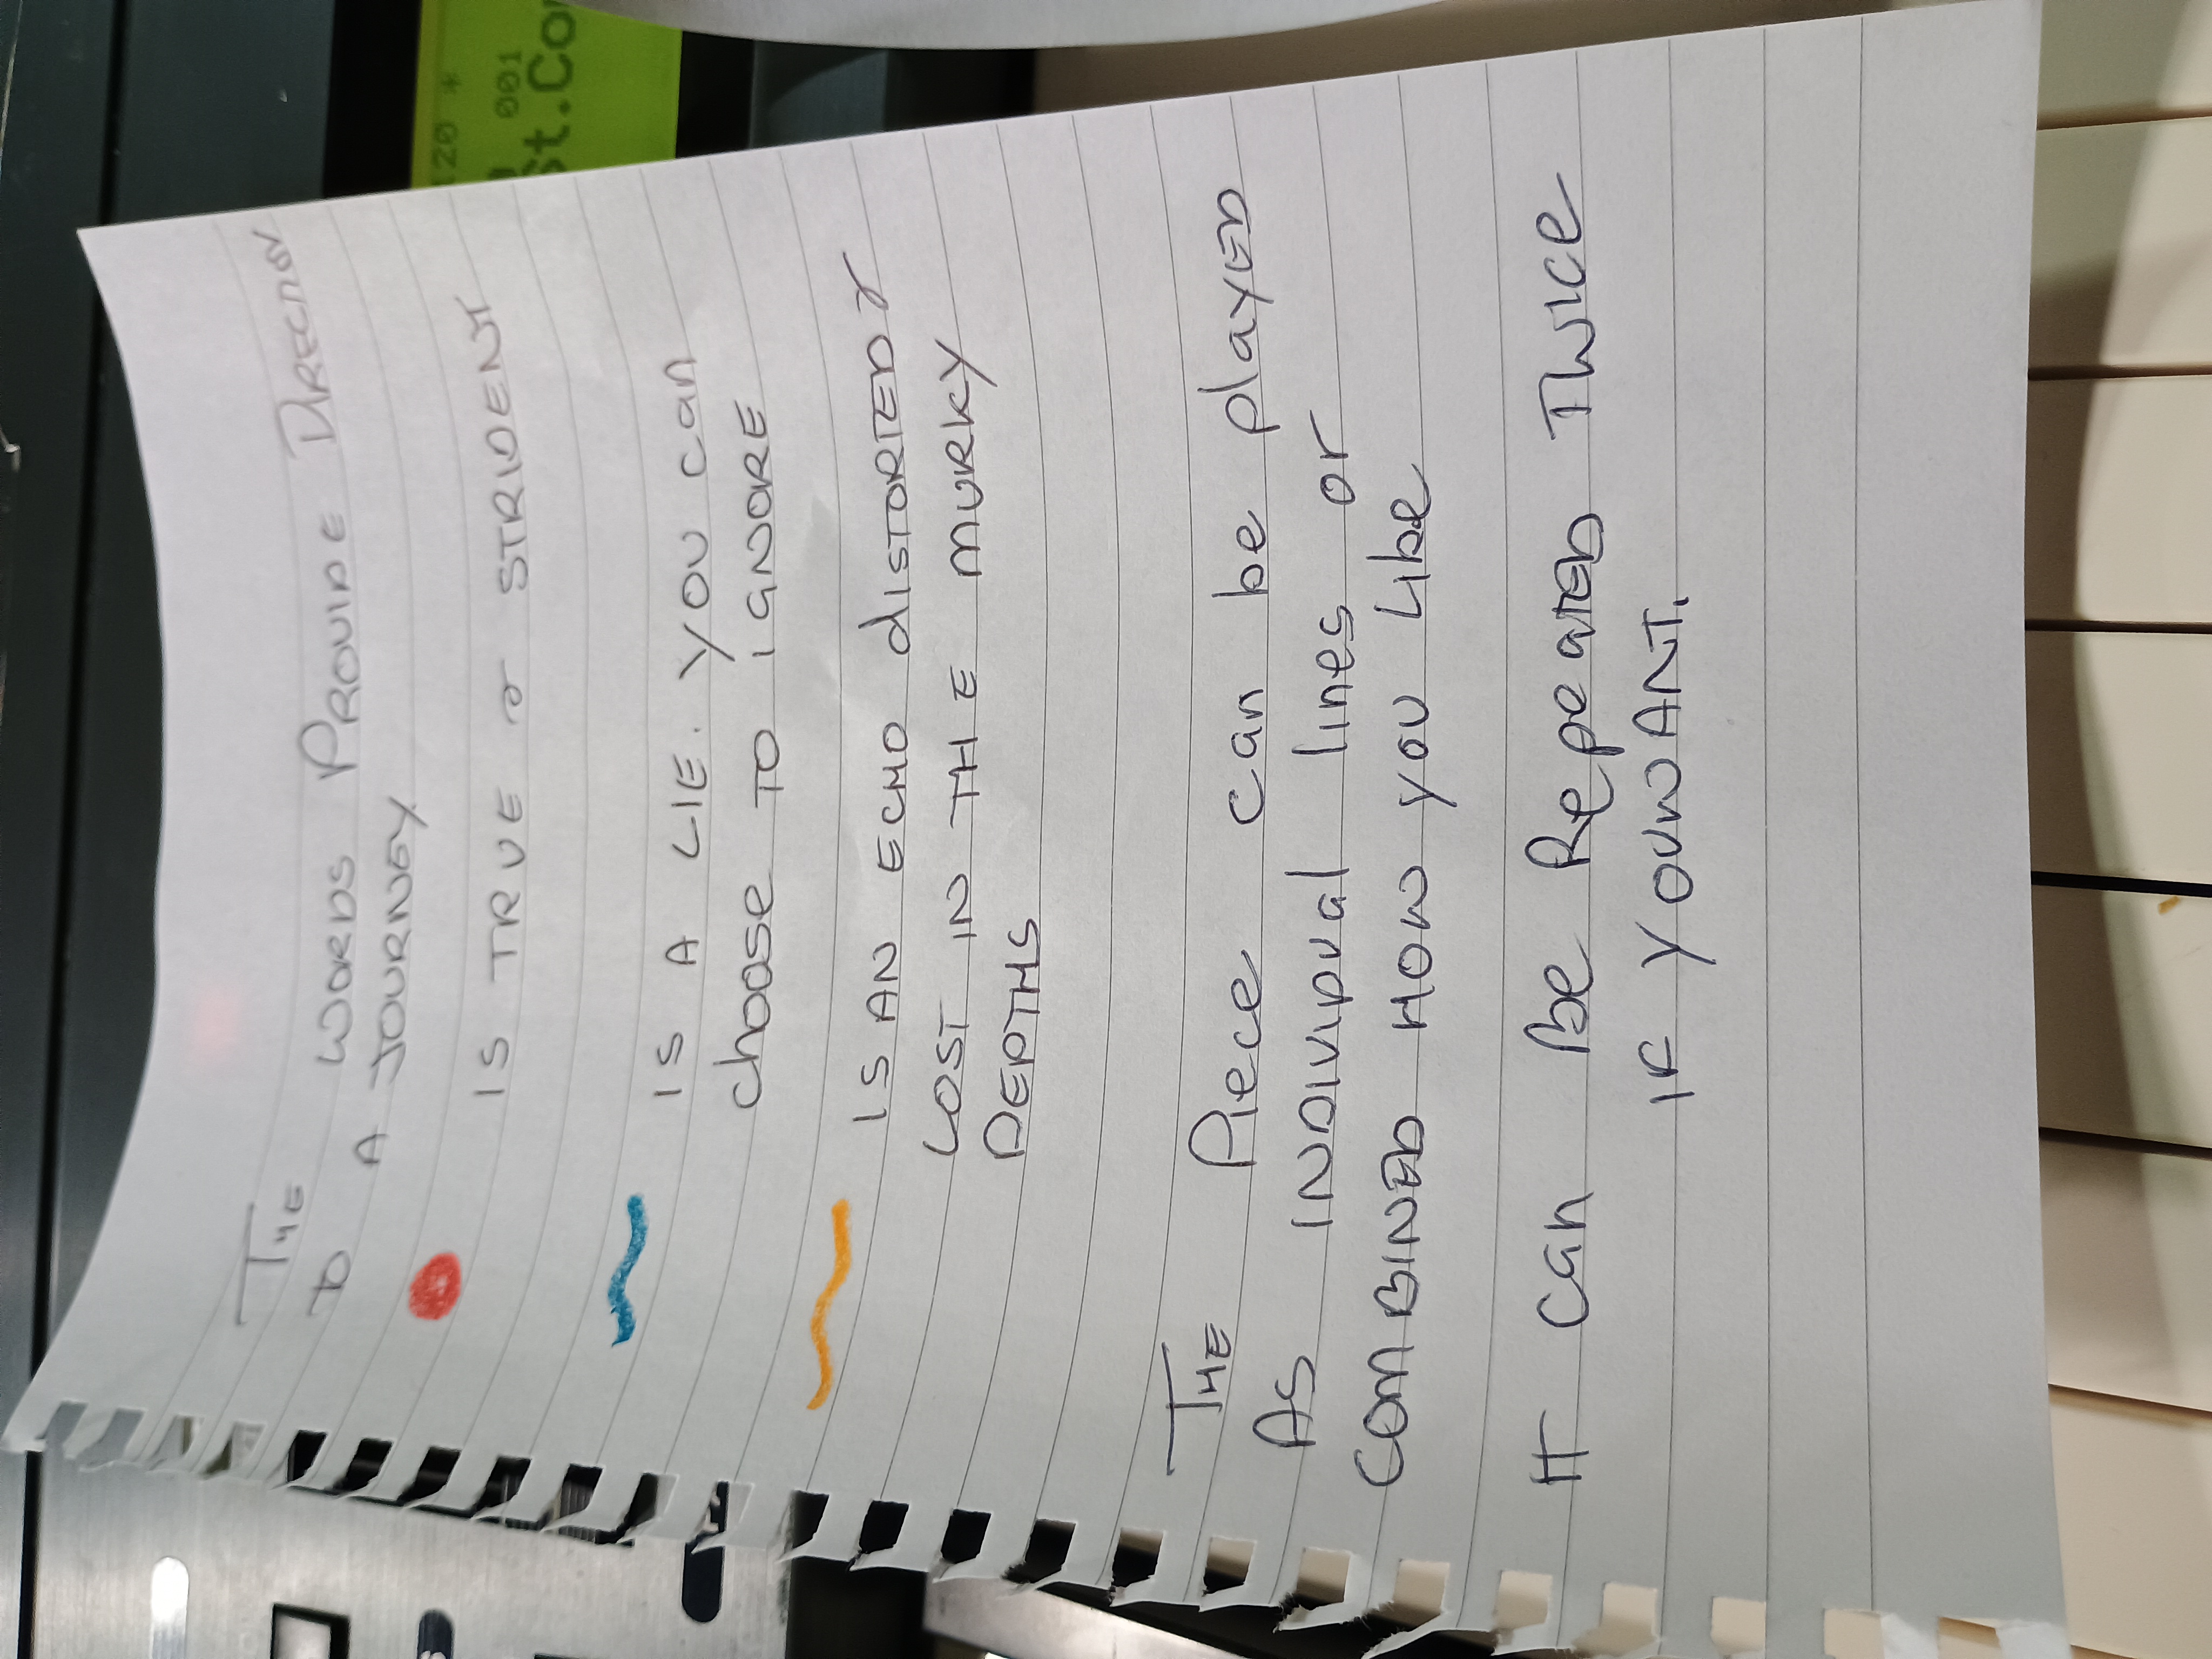 120 *
001
st.Co
THE WORDS PROVIDE DIRECTION
TO A JOURNEY
IS TRUE & STRIDENT
IS A LIE. YOU can
choose TO IGNORE
IS AN ECHO dISTORTED &
LOST IN THE MURKY
DEPTHS
THE Piece can be playED
AS INDIVIDUal lines or
COMBINED HOW you Like
IT can Be RepeaTED TWICE
IF YOU WANT.